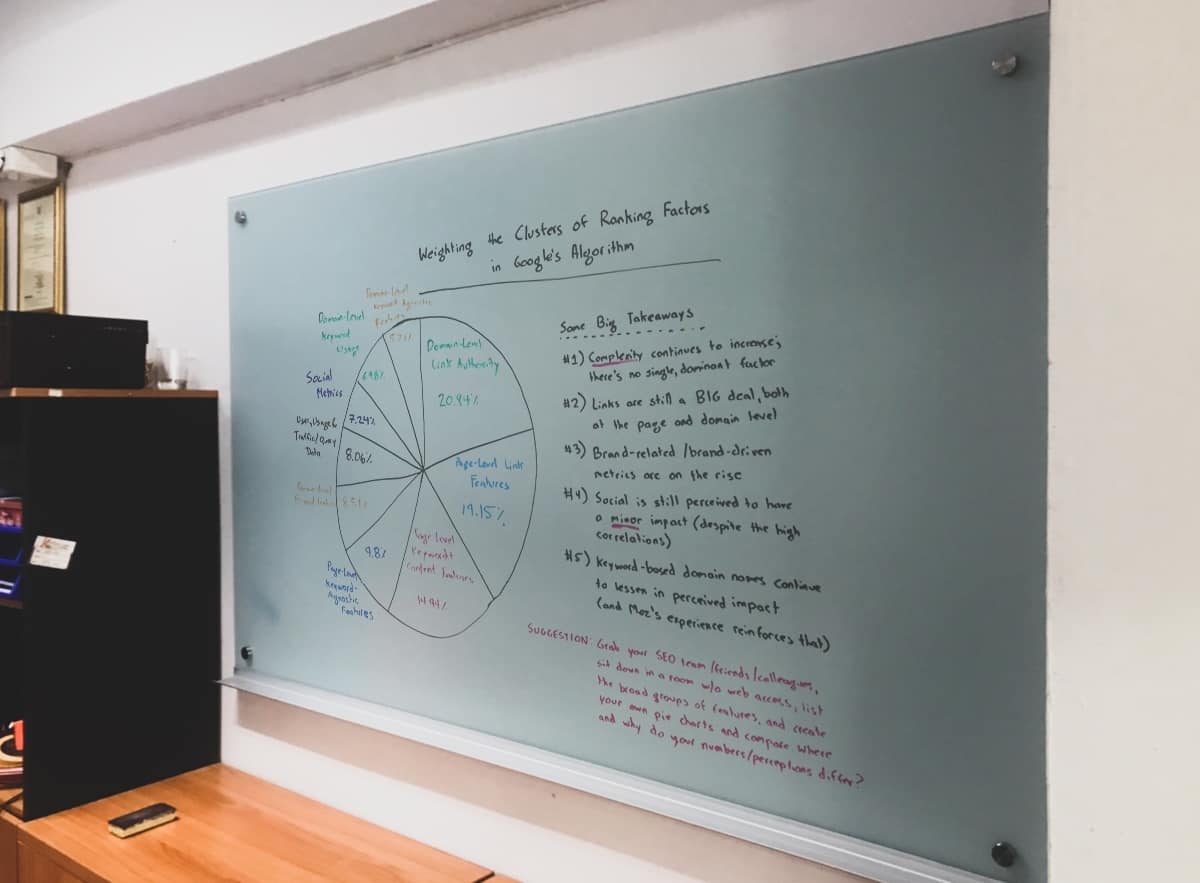 Weighting the Clusters of Ranking Factors
in Google's Algorithm
Domain-Level
Keyword Agnostic
Features
Domain-Level
Keyword
Usage
Social
Metrics
Data
Page-Level
Keyword-
Agnostic
Features
5.21%
6.98%
7.24%
8.06%
9.8%
Domain-Level
Link Authority
20.94%
Page-Level Link
Features
19.15%
Page Level
Content Features
14.94%
Some Big Takeaways
#1) Complexity continues to increase;
there's no single, dominant factor
#2) Links are still a BIG deal, both
at the page and domain level
#3) Brand-related /brand-driven
metrics are on the rise
#4) Social is still perceived to have
a minor impact (despite the high
correlations)
#5) Keyword-based domain names continue
to lessen in perceived impact
(and Moz's experience reinforces that)
SUGGESTION: Grab your SEO team/friends/colleagues,
sit down in a room w/o web access, list
the broad groups of features, and create
your own pie charts and compare where
and why do your numbers/perceptions differ?